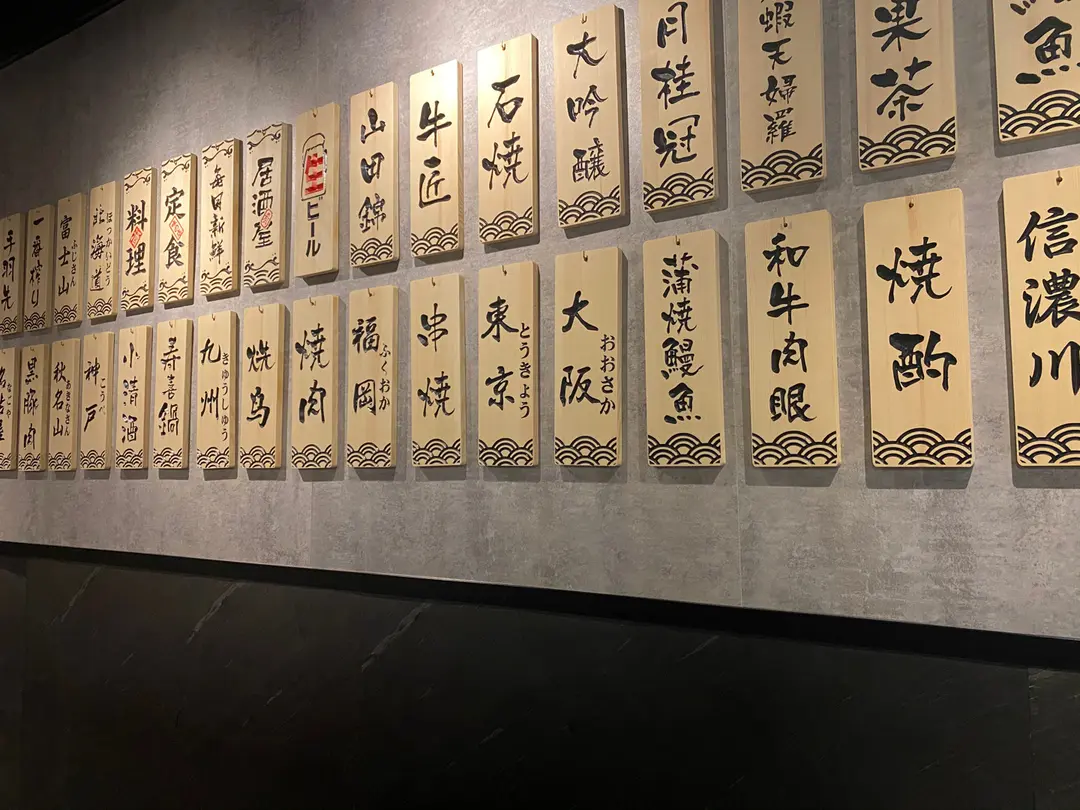 手羽先
一番搾り
富士山
ふじさん
北海道
ほっかいどう
料理
定食
毎日新鮮
居酒屋
ビール
山田錦
牛匠
石焼
大吟醸
月桂冠
蝦天婦羅
果茶
魚
名古屋
なごや
黒豚肉
秋名山
あきなさん
神戸
こうべ
小清酒
寿喜鍋
九州
きゅうしゅう
焼鸟
焼肉
福岡
ふくおか
串焼
東京
とうきょう
大阪
おおさか
蒲焼鰻魚
和牛肉眼
焼酌
信濃川